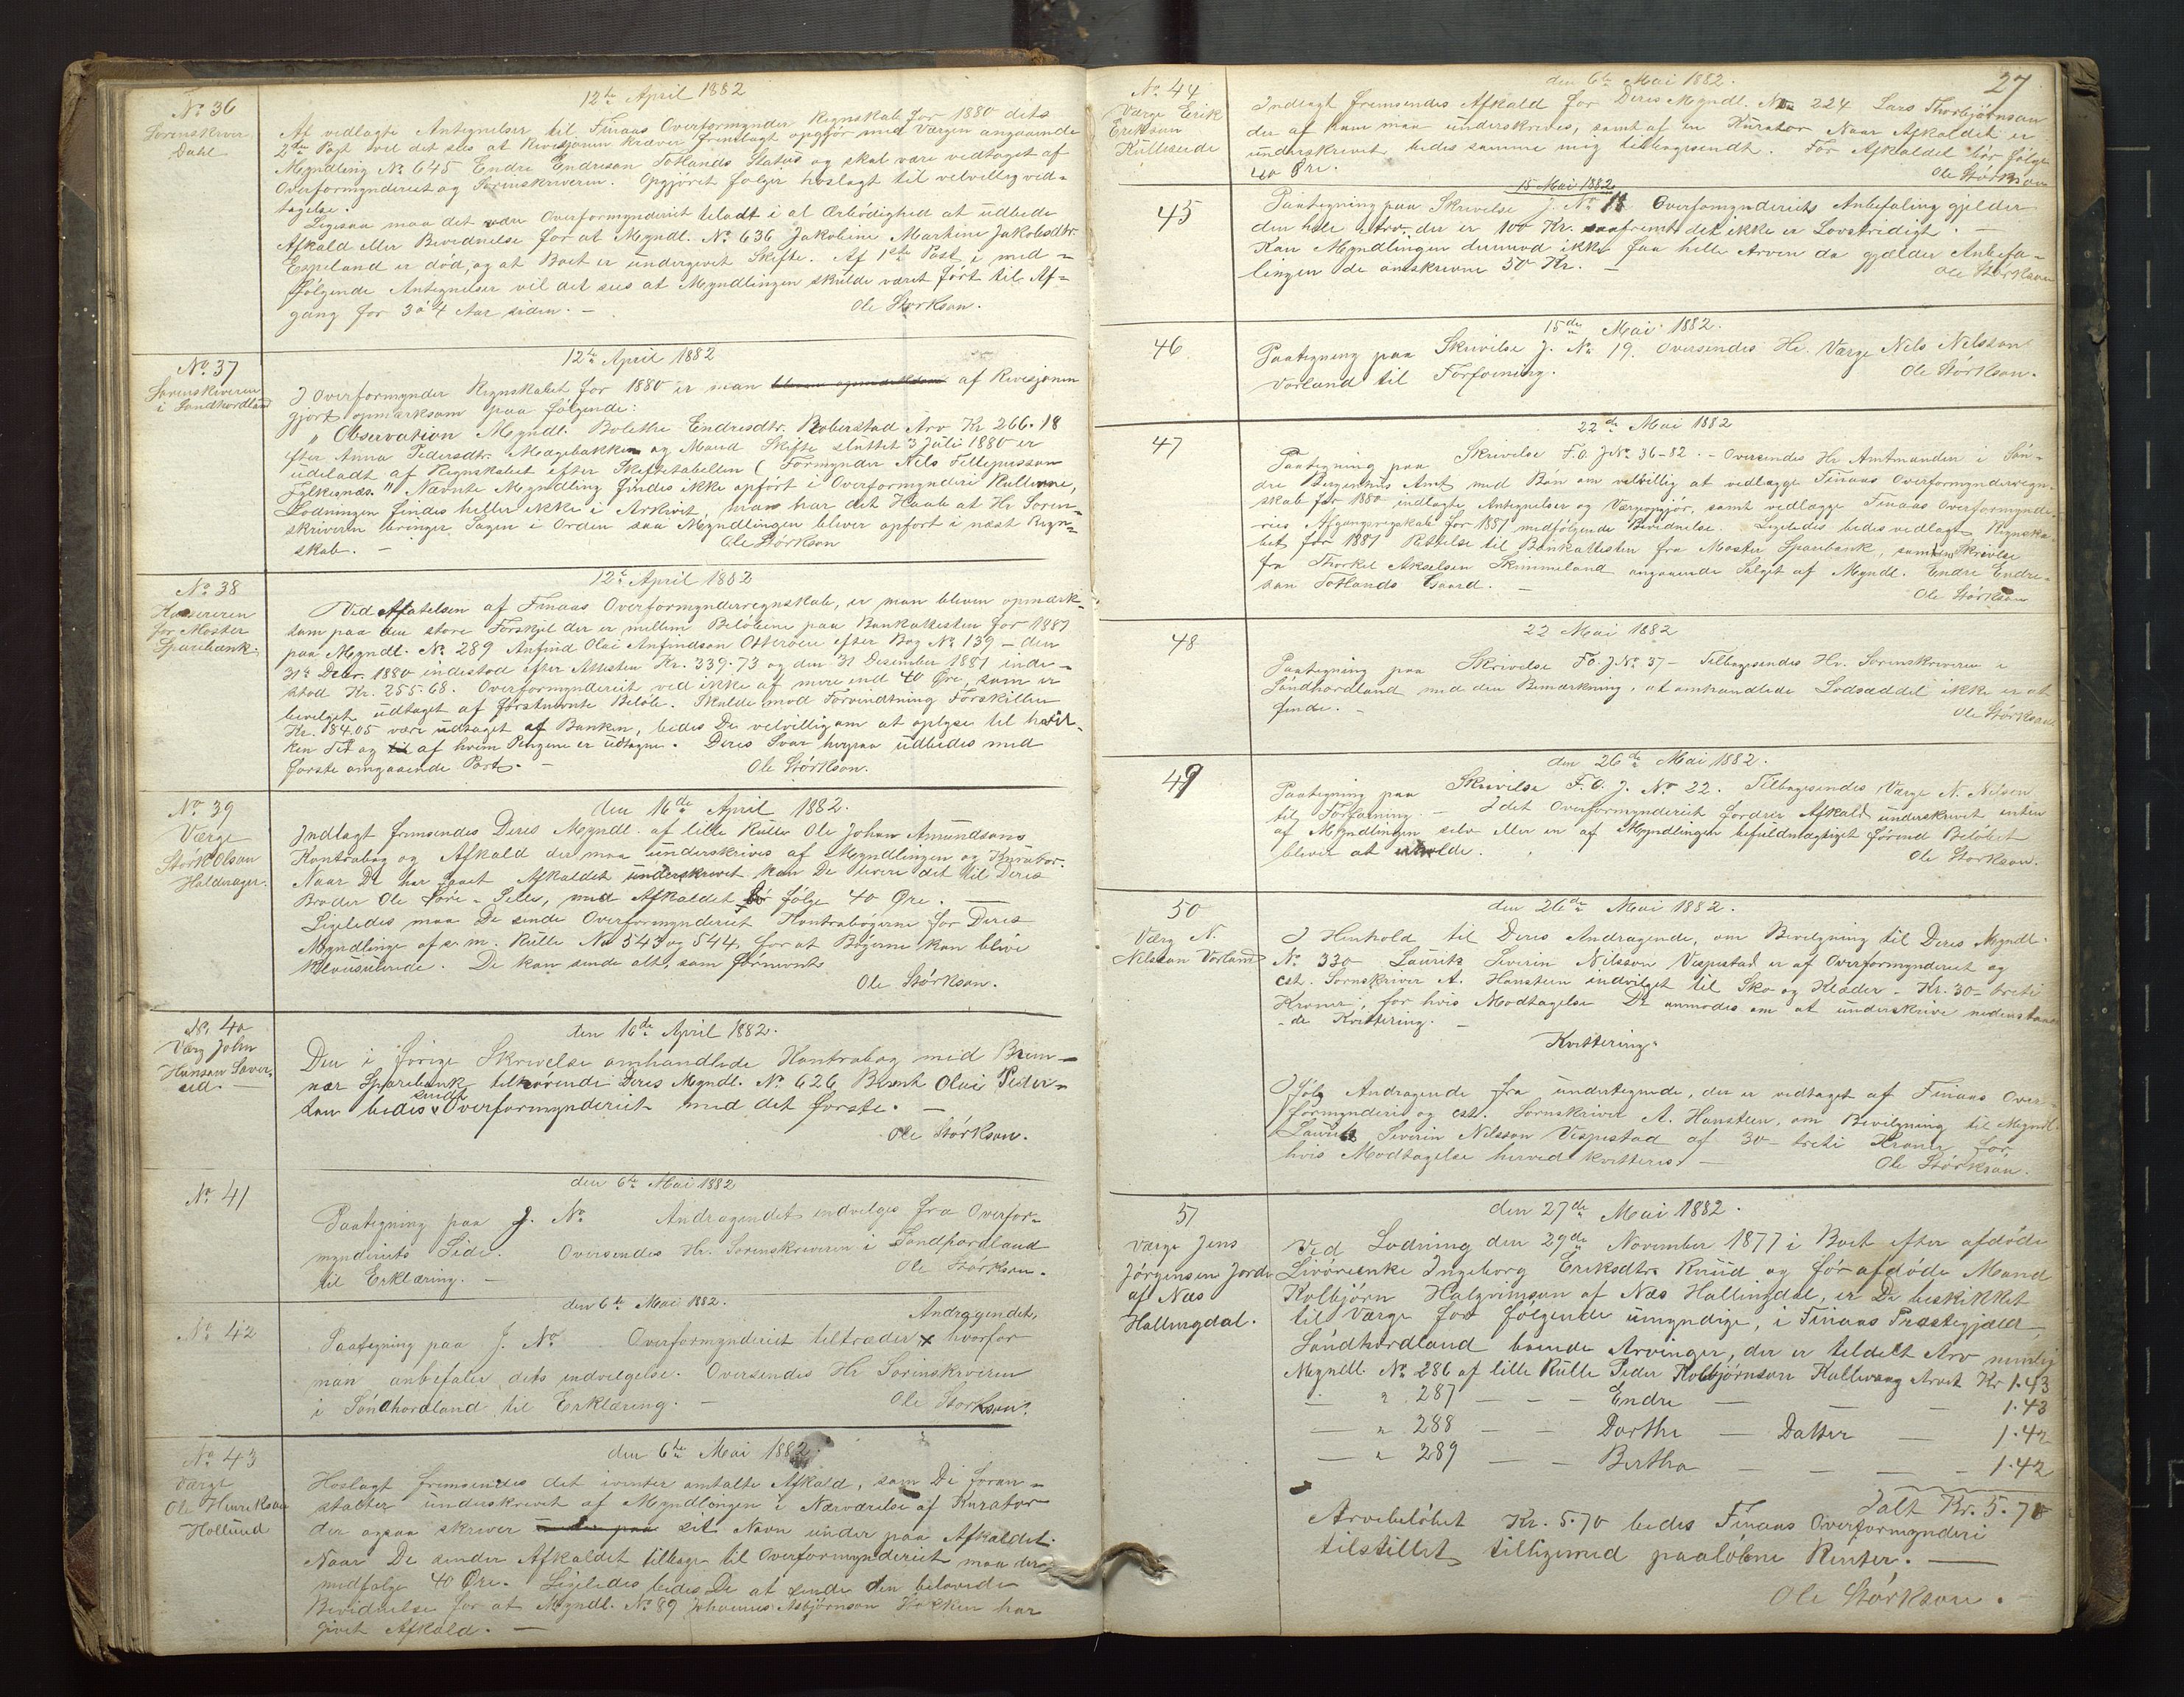 No. 36
Sorenskriver
Dahl
12te April 1882
Af vedlagte Antegnelser til Finaas Overformynder Regnskab for 1880 dets
2den Post vil det sees at Revisjonen kræver fremlagt opgjør med Værgen angaaende
Myndling No. 645 Endre Endreson Totlands Status og skal være vedtaget af
Overformynderiet og Sorenskriveren. Opgjöret følger hoslagt til velvillig ved-
tagelse.
Ligesaa maa det være Overformynderiet tiladt i al Ærbödighed at udbede
Afkald eller Bevidnelse for at Myndl. No. 636 Jakobine Martine Jakobsdtr.
Espeland er död, og at Boet er undergivet Skifte. Af 1ste Post i med-
følgende Antegnelser vil det sees at Myndlingen skulde været fört til Af-
gang for 3 á 4 Aar siden. —
Ole Størkson.
No. 37
Sorenskriveren
i Söndhordland
12te April 1882
I Overformynder Regnskabet for 1880 er man af Revisjonen
gjort opmærksom paa følgende:
„ Observation Myndl. Bolethe Endresdtr. Roberstad Arv Kr 266.18
efter Anna Pedersdtr. Mægebakken og Mand Skifte sluttet 3 Juli 1880 er
udeladt af Regnskabet efter Skiftetabellen ( Formynder Nils Tellefsson
Fylkesnæs." Nævnte Myndling findes ikke opfört i Overformynderi Rullerne,
Lodningen findes heller ikke i Arkivet, man har det Haab at Hr. Soren-
skriveren bringer Sagen i Orden saa Myndlingen bliver opfört i næst Regn-
skab. —
Ole Størkson
No. 38
Kasereren
for Moster
Sparebank.
12te April 1882
Ved Aflatelsen af Finaas Overformynderregnskab, er man bleven opmærk-
som paa den store Forskjel der er mellem Belöbene paa Bankattesten for 1881
paa Myndl. No. 289 Anfind Olai Anfindson Otteröen efter Bog No. 139 — den
31te Decbr. 1880 indestod efter Attesten Kr. 339.73 og den 31 Desember 1881 inde-
stod Kr. 255.68. Overformynderiet ved ikke af mere end 40 Øre, som er
bevilget udtaget af förstnævnte Belöb. Skulde mod Forvindtning Forskillen
Kr. 84.05 være udtaget af Banken, bedes De velvilligen om at oplyse til hvil-
ken Tid og af hvem Pengene er udtagne. Deres Svar herpaa udbedes med
förste omgaaende Post. —
Ole Störkson.
No. 39
Værge
Störk Olson
Haldorager.
den 16de April 1882.
Indlagt fremsendes Deres Myndl. af lille Rulle Ole Johan Amundsons
Kontrabog og Afkald der maa underskrives af Myndlingen og Kurator.
Naar De har faaet Afkaldet underskrevet kan De levere det til Deres
Broder Ole Sore-Selle, med Afkaldet bör følge 40 Øre. —
Ligeledes maa De sende Overformynderiet Kontrabögerne for Deres
Myndlinge af s. m. Rulle No 543 og 544, for at Bögerne kan blive
Klousulerede. De kan sende alt, som förnævnte
Ole Störkson.
No. 40
Værg John
Hanson Løver-
eid. —
den 16de April 1882.
Den i forige Skrivelse omhandlede Kontrabog med Brem-
nær Sparebank tilhörende Deres Myndl. No. 626 Bernt Olai Peder-
son bedes sendt Overformynderiet med det förste. —
Ole Störkson.
No. 41
den 6te Mai 1882
Paategning paa J. No. Andragendet indvilges fra Overfor-
mynderiets Side. Oversendes Hr. Sorenskriveren i Söndhordland
til Erklæring. —
Ole Störkson.
No. 42
den 6te Mai 1882.
Andragendet,
Paategning paa J. No. Overformynderiet tiltræder × hvorfor
man anbefaler dets indvilgelse. Oversendes Hr Sorinskriveren
i Söndhordland til Erklæring. —
Ole Storkson.
No. 43
Værge
Ole Henrikson
Hollund
den 6te Mai 1882.
Hoslagt fremsendes det ivinter omtalte Afkald, som De foran-
stalter underskrevet af Myndlingen i Nærværelse af Kurator
der ogsaa skriver sit Navn under paa Afkaldet.
Naar De sender Afkaldet tilbage til Overformynderiet maa der
medfølge 40 Øre. Ligeledes bedes De at sende den belovede
Bevidnelse for at Myndl. No. 89 Johannes Asbjörnson Hokken har
givet Afkald. —
27
No. 44
Værge Erik
Erikson
Kulleseide
den 6te Mai 1882.
Indlagt fremsendes Afkald for Deres Myndl. No 224 Lars Thorbjörnson
der af ham maa underskrives, samt af en Kurator. Naar Afkaldet er
underskrevet bedes samme mig tilbagesendt. For Afkaldet bör følge
40 Öre.
Ole Störkson
45
15 Mai 1882
Paategning paa Skrivelse J. No. 18 Overfomynderiets Anbefaling gjelder
den hele Arv, der er 100 Kr. saafremt det ikke er Lovstridigt. —
Kan Myndlingen derimod ikke faa hele Arven da gjælder Anbefa-
lingen de omskrevne 50 Kr. —
Ole Störkson
46
15de Mai 1882.
Paategning paa Skrivelse J. No. 19. Oversendes Hr. Værge Nels Nelsson
Vorland til Forføining.
Ole Störkson.
47
22de Mai 1882
Paategning paa Skrivelse F.O. J No. 36-82. — Oversendes Hr Amtmanden i Sön-
dre Bergenhus Amt med Bön om velvillig at vedlægge Finaas Overformynderregn-
skab for 1880 indlagte Antegnelser og Værgeopgjör, samt vedlægge Finaas Overformynde-
ries Afgangsregskab for 1881 medfølgende Bevidnelse. Ligeledes bedes vedlagt Regnska-
bet for 1881 Rettelse til Bankattesten fra Moster Sparebank, samt Skrivelse
fra Thorkel Akselsen Skimmeland angaaende Salget af Myndl. Endre Endre-
son Totlands Gaard. —
Ole Störkson
48
22 Mai 1882
Paategning paa Skrivelse F.O. J No. 37 — Tilbagesendes Hr. Sorenskriveren i
Söndhordland med den Bemærkning, at omhandlede Lodseddel ikke er at
finde. —
Ole Störkson
49
den 26de Mai 1882.
Paategning paa Skrivelse F. O. J. No. 22. Tilbagesendes Værge N. Nilson
til Forføining. — Idet Overformynderiet fordrer Afkald underskrivet enten
af Myndlingen selv eller en af Myndlingen befuldmægtiget förend Belöbet
bliver at erholde.
Ole Storkson.
50
Værg N.
Nilsson Vorland
den 26de Mai 1882.
I Henhold til Deres Andragende, om Bevilgning til Deres Myndl.
No. 330 Lauritz Severin Nilsson Vespestad er af Overformynderiet og
cst. Sornskriver A. Hansteen indvilget til Sko og Klæder — Kr. 30 — treti
Kroner, for hvis Modtagelse De anmodes om at underskrive nedenstaaen
-de Kvittering. —
Kvittering.
Ifølg Andragende fra undertegnede, der er vedtaget af Finaas Over-
formynderi og cst. Sornskriver A. Hansteen, om Bevilgning til Myndl.
Lauritz Severin Nilsson Vespestad af 30 — treti Kroner for
hvis Modtagelse herved kvitteres. —
Ole Störkson.
51
Værge Jens
Jörgensen Jorde
af Næs
Hallingdal.
den 27de Mai 1882.
Ved Lodning den 29de November 1877 i Boet efter afdöde
Livörenke Ingeborg Eriksdtr. Ruud og för afdöde Mand
Kolbjörn Halgrimson af Næs Hallingdal, er De beskikket
til Værge for følgende umyndige, i Finaas Præstegjæld
Söndhordland boende Arvinger, der er tildelt Arv nemlig
Myndl. No. 286 af lille Rulle Peder Kolbjörnson Kallevaag Arvet Kr 1.43
— " 287 — — — Endre — — 1.43
— " 288 — — Dorthe — Datter — 1.42
— " 289 — — Bertha — — — — 1.42
Ialt Kr. 5.70
Arvebelöbet Kr. 5.70 bedes Finaas Overformynderi
tilstillet tilligemed paalöbne Renter. —
Ole Störkson.